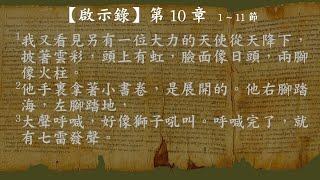 【啟示錄】第 10 章 1~11 節
1我又看見另有一位大力的天使從天降下，
披著雲彩，頭上有虹，臉面像日頭，兩腳
像火柱。
2他手裏拿著小書卷，是展開的。他右腳踏
海，左腳踏地，
3大聲呼喊，好像獅子吼叫。呼喊完了，就
有七雷發聲。